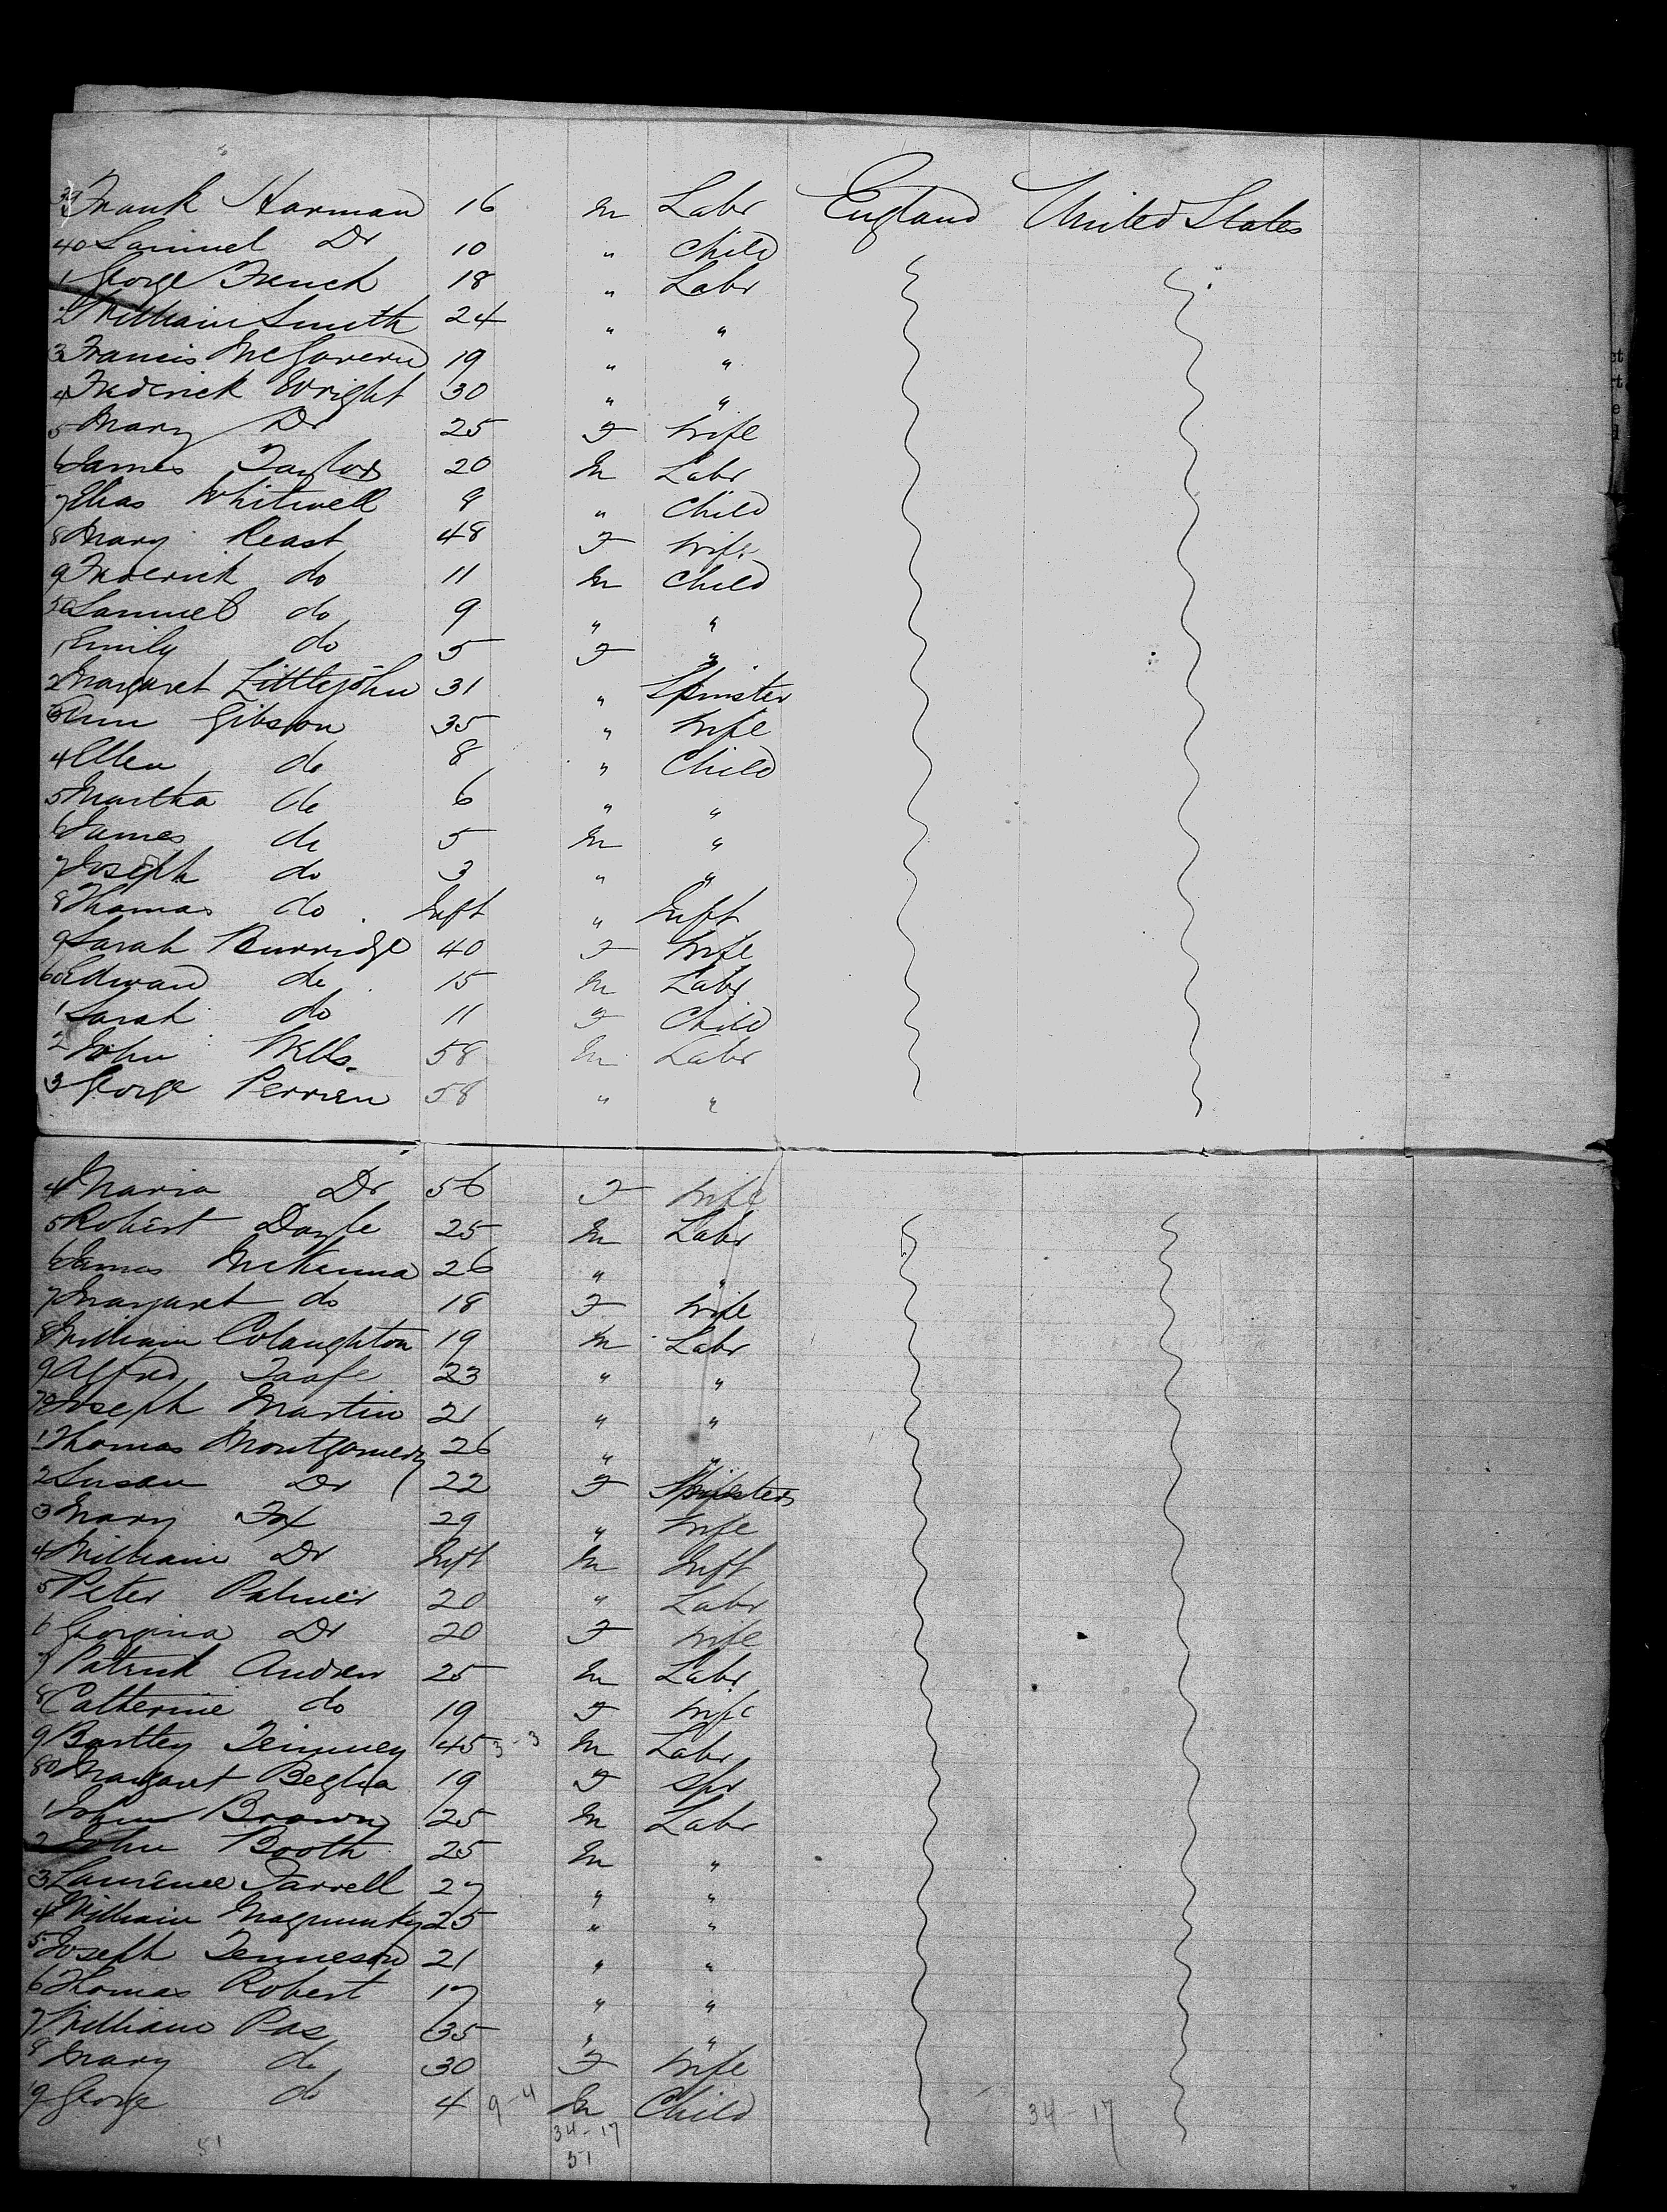 39 Frank Harman 16 M Labr England United States
40 Samuel Do 10 " Child
1 George French 18 " Labr
2 William Smith 24 " "
3 Francis McGovern 19 " "
4 Frederick Wright 30 " "
5 Mary Do 25 F Wife
6 James Taylor 20 M Labr
7 Elias Whitwell 9 " Child
8 Mary Reast 48 F Wife
9 Frederick do 11 M Child
50 Samuel do 9 " "
1 Emily do 5 F "
2 Margaret Littlejohn 31 " Spinster
3 Ann Gibson 35 " Wife
4 Ellen do 8 " Child
5 Martha do 6 " "
6 James do 5 M "
7 Joseph do 3 " "
8 Thomas do Inft " Inft
9 Sarah Burridge 40 F Wife
60 Edward do 15 M Labr
1 Sarah do 11 F Child
2 John Wells 58 M Labr
3 George Perrien 58 " "
4 Maria Do 56 F Wife
5 Robert Doyle 25 M Labr
6 James McKenna 26 " "
7 Margaret do 18 F Wife
8 William Colaughton 19 M Labr
9 Alfred Taafe 23 " "
70 Joseph Martin 21 " "
1 Thomas Montgomery 26 " "
2 Susan Do 22 F
3 Mary Fox 29 " Wife
4 William Do Inft M Inft
5 Peter Palmer 20 " Labr
6 Georgina Do 20 F Wife
7 Patrick Andrew 25 M Labr
8 Catherine do 19 F Wife
9 Bartley 45 3-3 M Labr
80 Margaret 19 F Spr
1 John Brown 25 M Labr
2 John Booth 25 M "
3 Laurence Farrell 27 " "
4 William 25 " "
5 Joseph Tenneson 21 " "
6 Thomas Robert 17 " "
7 William Pas 35 " "
8 Mary do 30 F Wife
9 George do 4 9-4 M Child
34-17 34-17
51 51